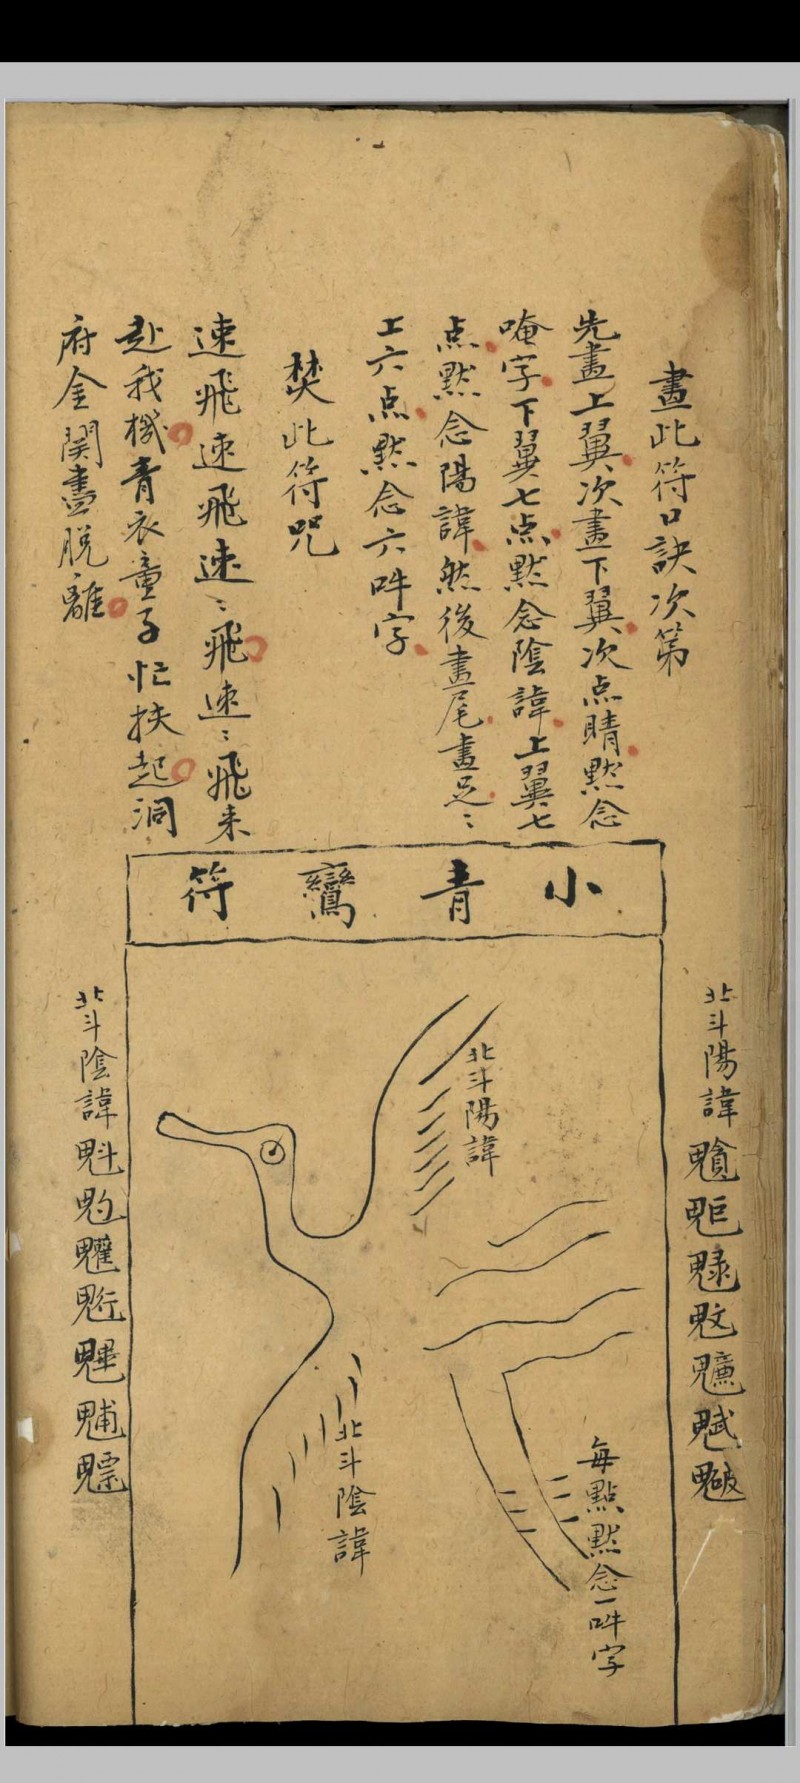 畫此符口訣次第
先畫上翼次畫下翼次点睛黙念
唵字下翼七点黙念陰諱上翼七
点黙念陽諱然後畫尾畫足〻
工六点黙念六吽字
焚此符咒
速飛速飛速〻飛速〻飛来
赴我機青衣童子忙扶起洞
府金関盡脱離
小青鸞符
北斗陽諱
北斗陽諱
北斗陰諱
每點黙念一吽字
北斗陰諱魁𩲃䰢魓䰡